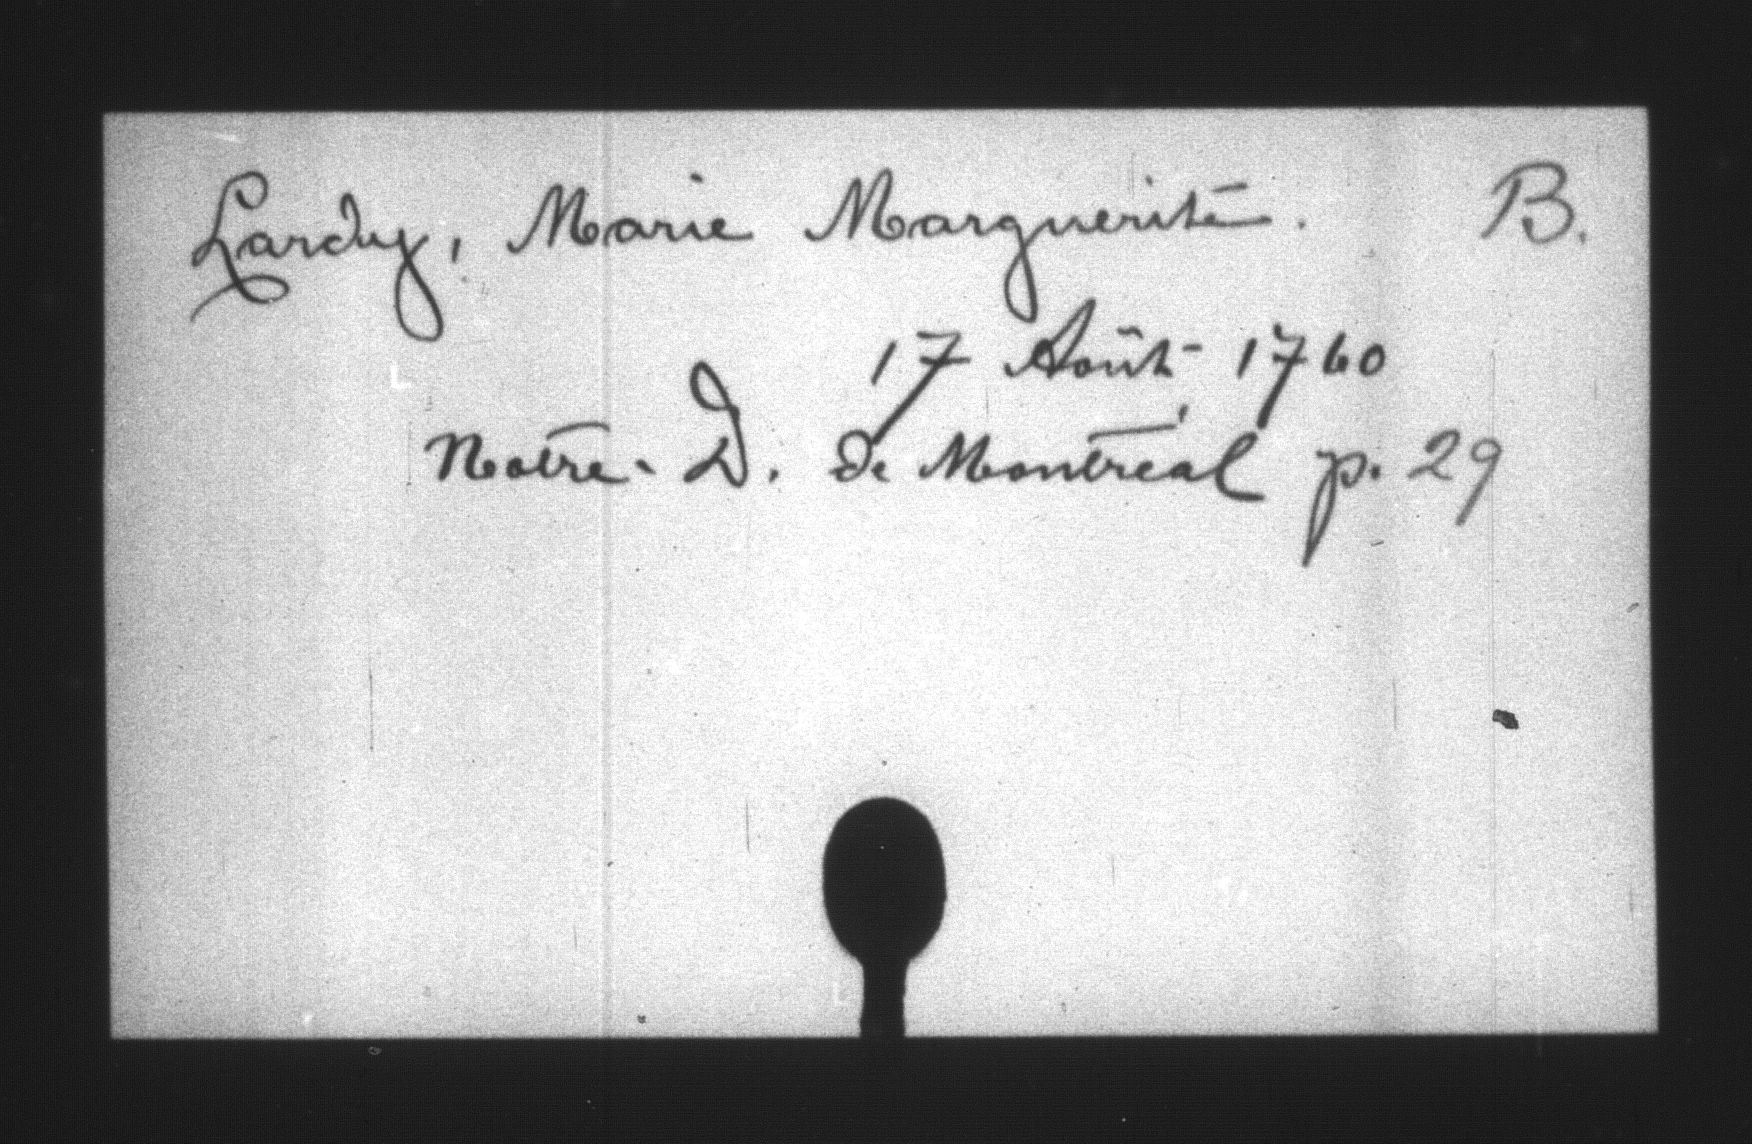 Lardy, Marie Marguerite. B.
17 Août 1760
Notre-D. de Montréal p. 29